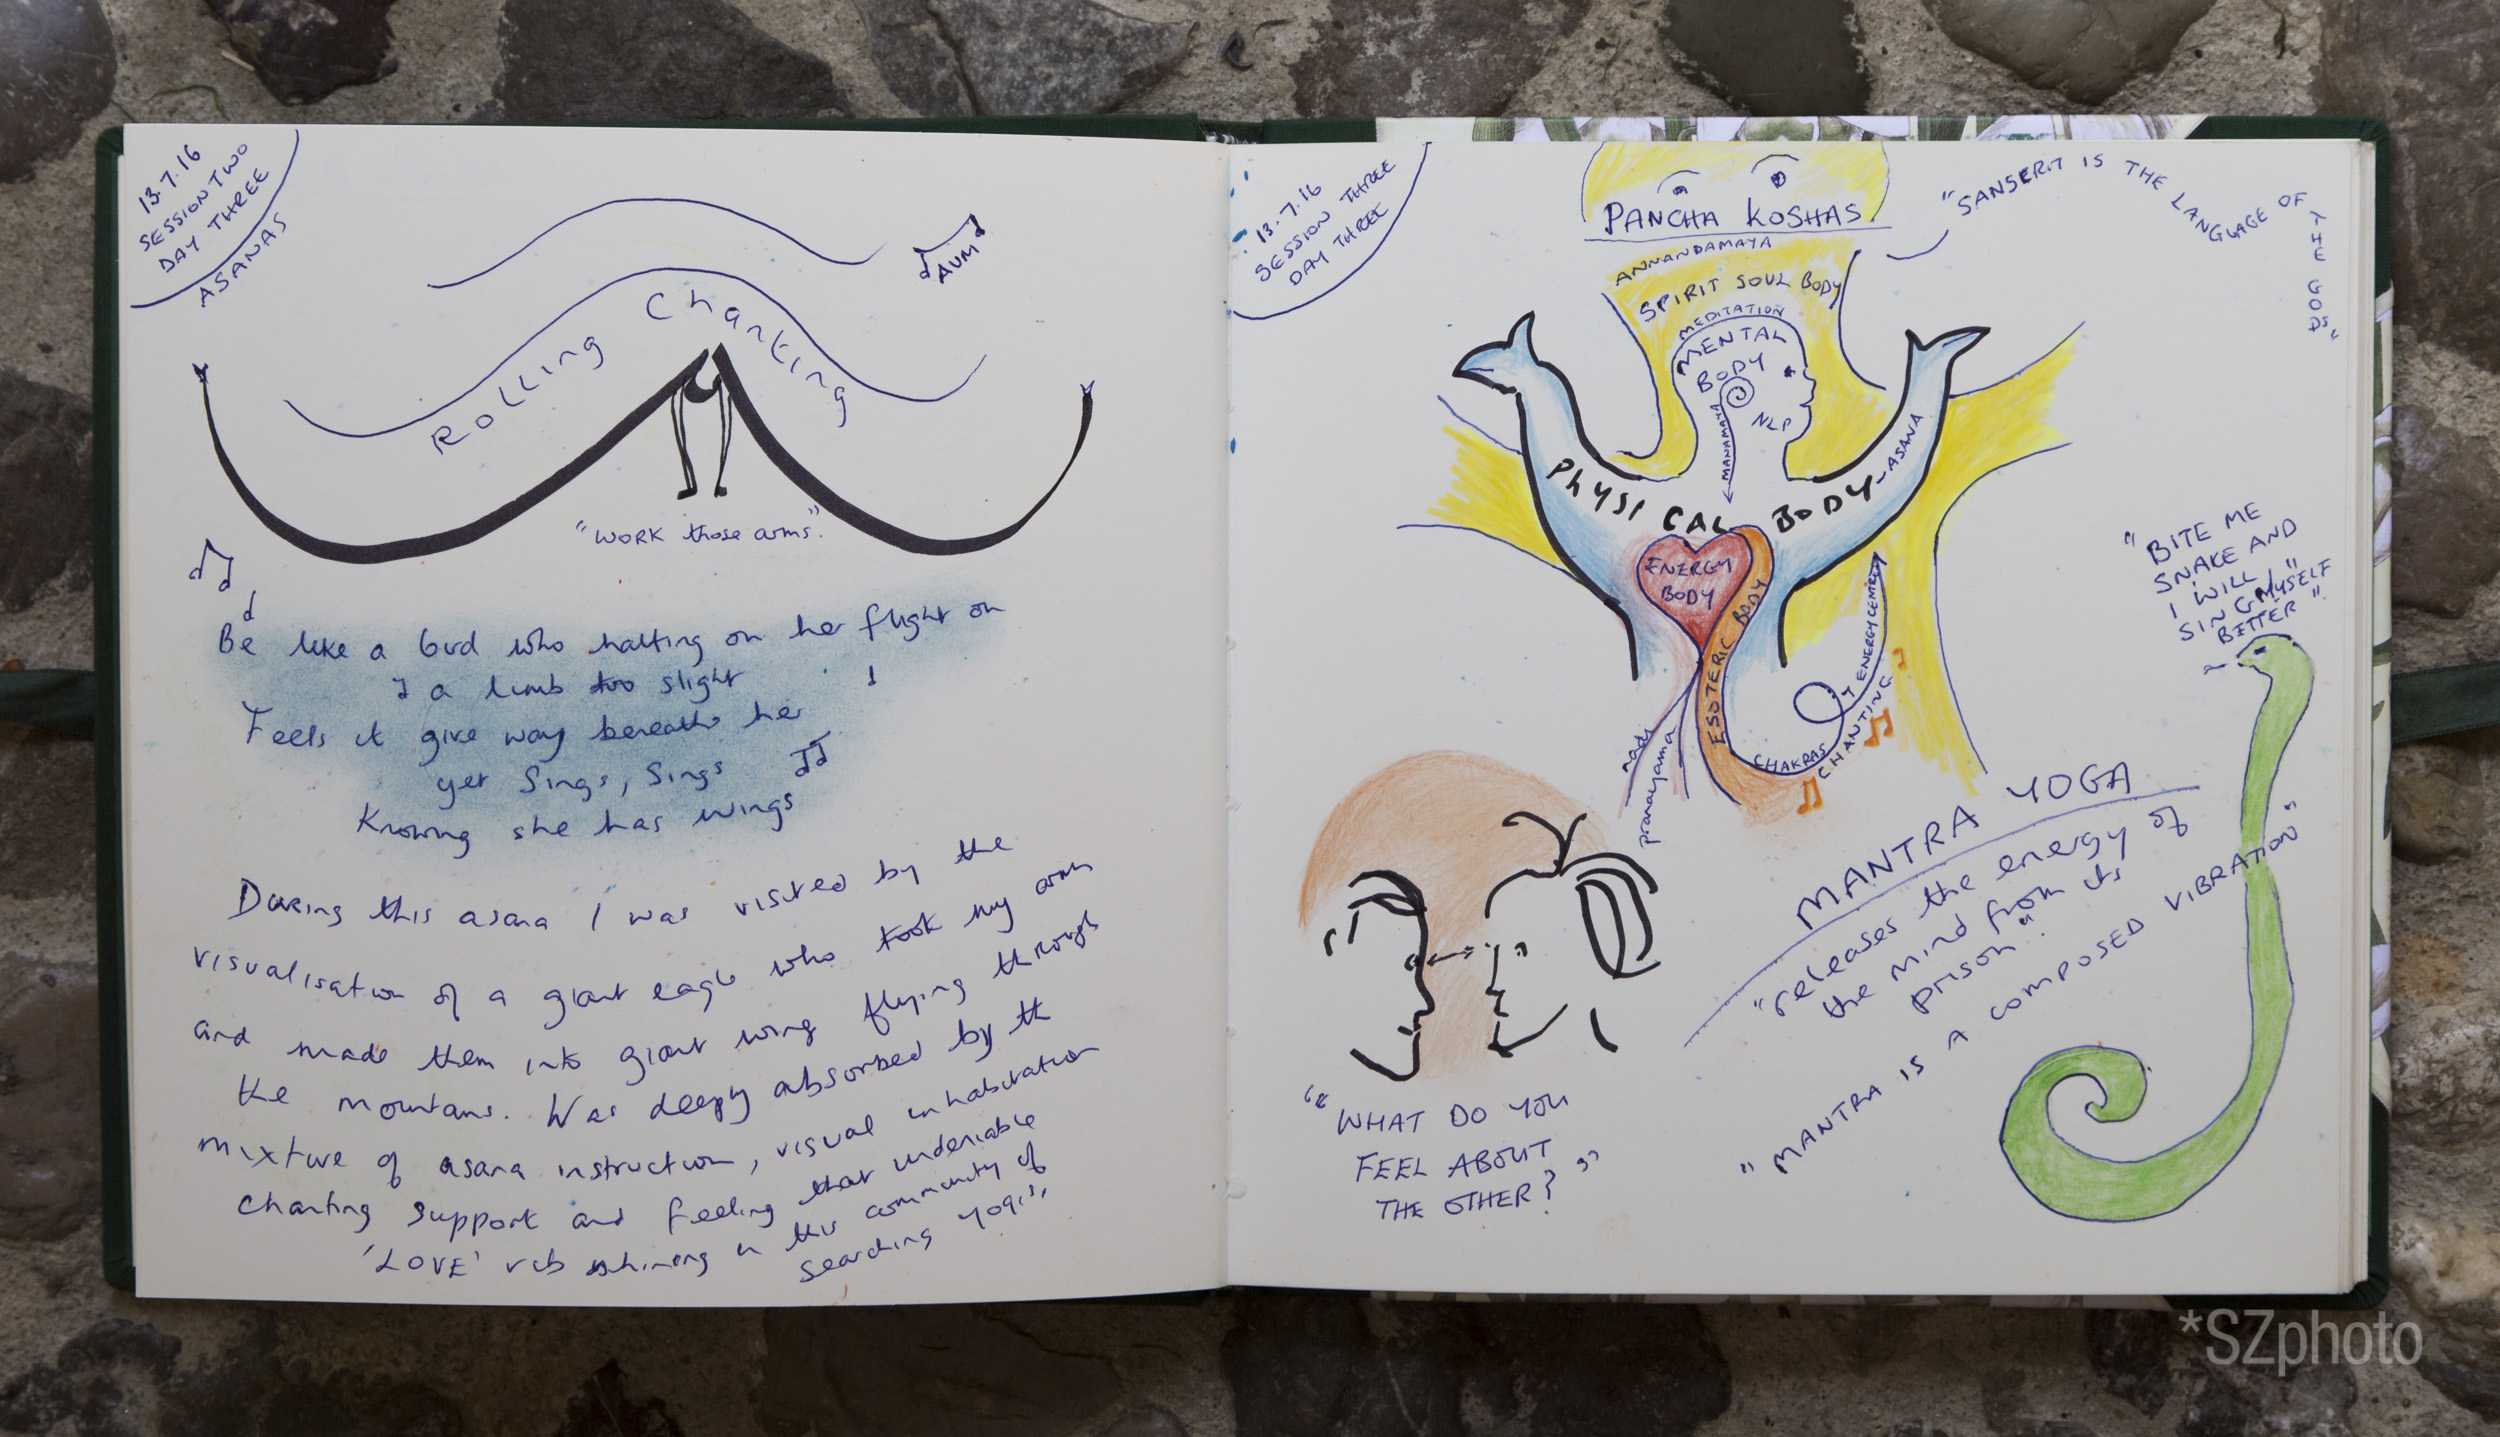 13.7.16
SESSION TWO
DAY THREE
ASANAS
AUM
Rolling Chanking
"WORK those arms."
Be like a bird who halting on her flight on
a limb too slight
Feels it give way beneath her
yet Sings, Sings
Knowing she has wings
During this asana I was visited by the
visualisation of a giant eagle who took my arms
and made them into giant wing flying through
the mountains. Was deeply absorbed by the
mixture of asana instruction, visual inhabitation
Chanting support and feeling that undeniable
'LOVE' vib shining in this community of
searching yogis,
13.7.16
SESSION THREE
DAY THREE
PANCHA KOSHAS
ANNANDAMAYA
SPIRIT SOUL BODY
MEDITATION
MENTAL
BODY
NLP
MANAMAYA
"SANSERIT IS THE LANGUAGE OF THE GODS"
PHYSICAL BODY-ASANA
ENERGY
BODY
ESOTERIC BODY
CHAKRAS 7 ENERGY CENTRES
CHANTING
nadi
pranayama
"BITE ME
SNAKE AND
I WILL"
SING MYSELF
BITTER".
MANTRA YOGA
"releases the energy of
the mind from its
prison".
"MANTRA IS A COMPOSED VIBRATION"
"WHAT DO YOU
FEEL ABOUT
THE OTHER?"
*SZphoto